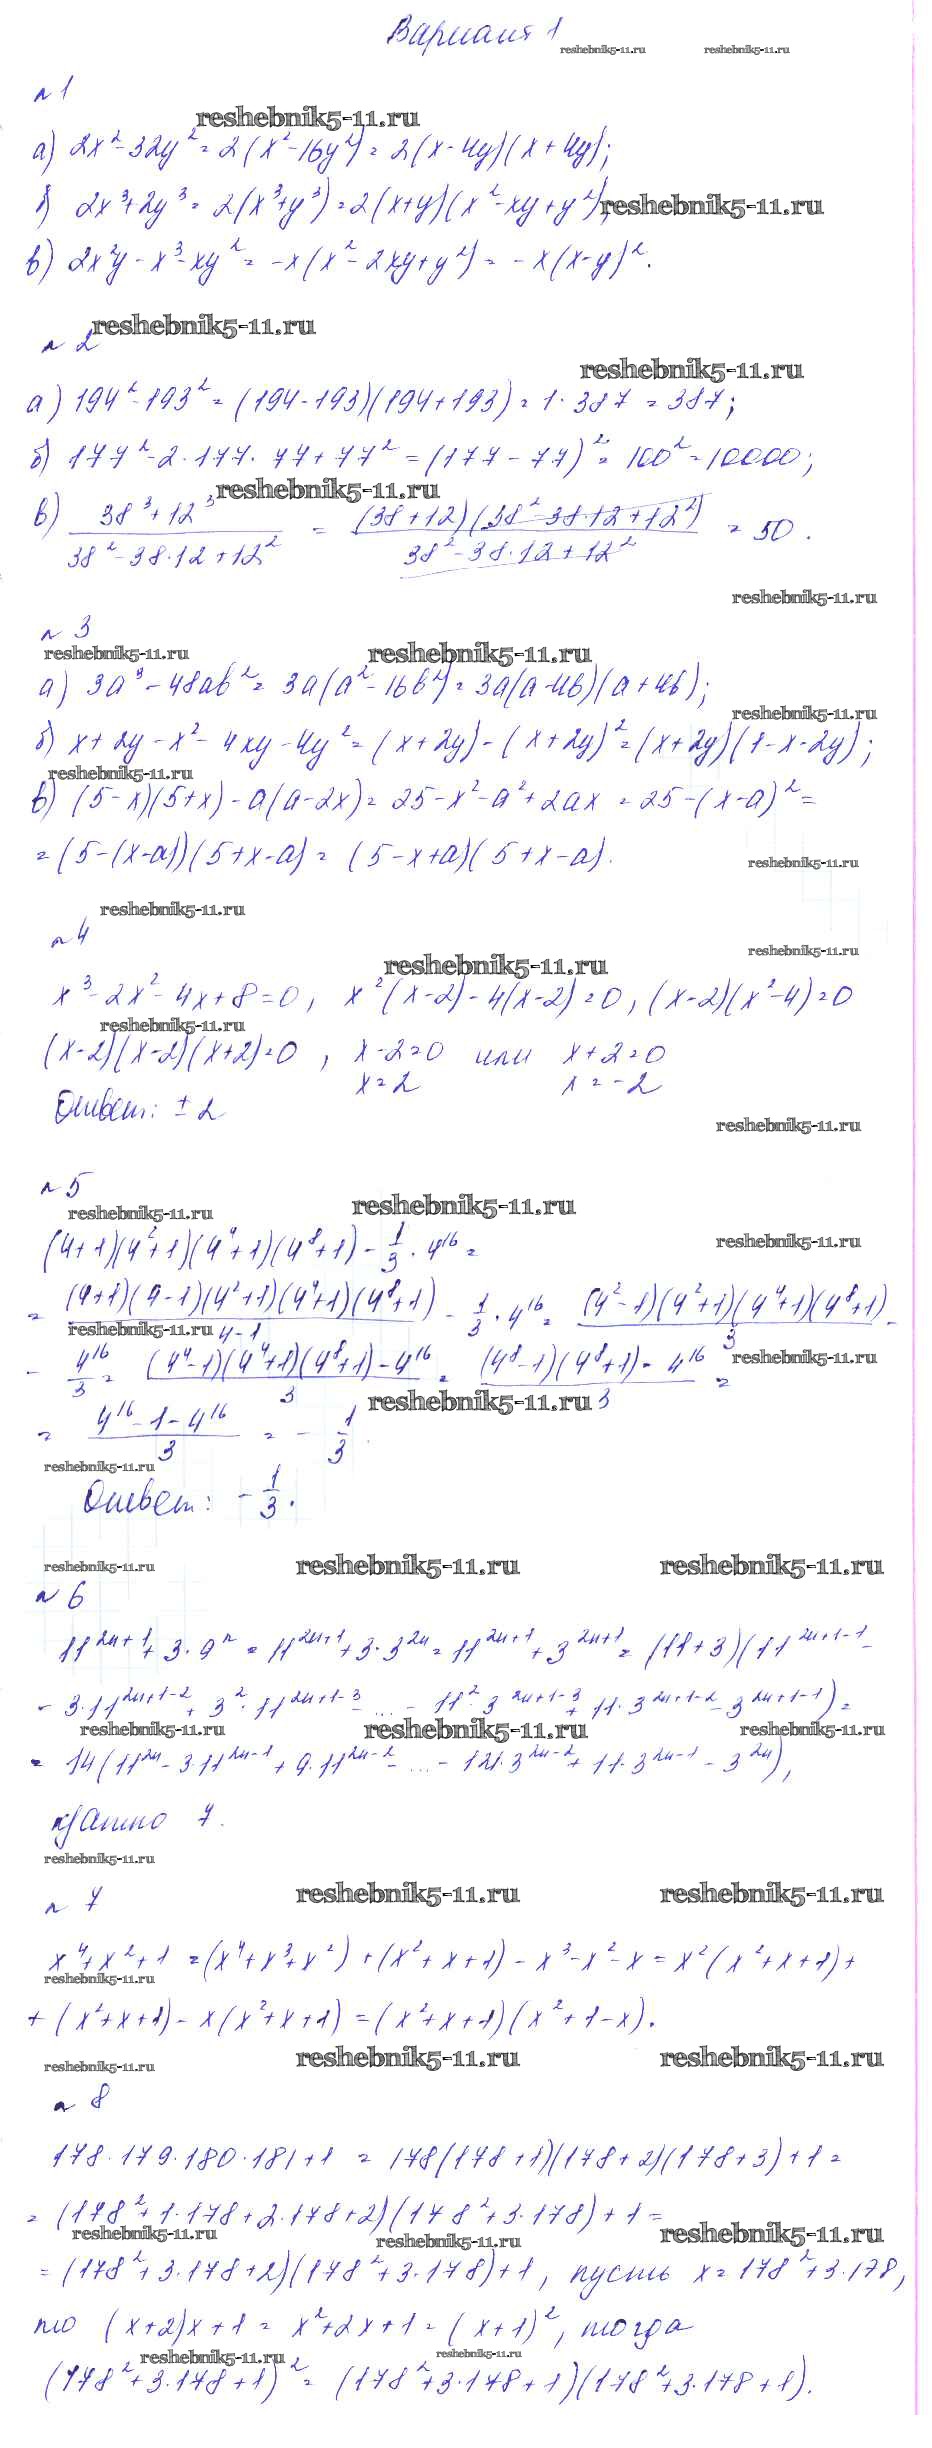 Вариант 1
reshebnik5-11.ru reshebnik5-11.ru
№ 1
reshebnik5-11.ru
а) 2x² - 32y² = 2(x² - 16y²) = 2(x - 4y)(x + 4y);
б) 2x³ + 2y³ = 2(x³ + y³) = 2(x + y)(x² - xy + y²); reshebnik5-11.ru
в) 2x²y - x³ - xy² = -x(x² - 2xy + y²) = -x(x - y)².
reshebnik5-11.ru
№ 2
reshebnik5-11.ru
а) 194² - 193² = (194 - 193)(194 + 193) = 1 · 387 = 387;
б) 177² - 2 · 177 · 77 + 77² = (177 - 77)² = 100² = 10000;
reshebnik5-11.ru
в) (38³ + 12³)/(38² - 38·12 + 12²) = ((38 + 12)(38² - 38·12 + 12²))/(38² - 38·12 + 12²) = 50.
reshebnik5-11.ru
№ 3
reshebnik5-11.ru reshebnik5-11.ru
а) 3a³ - 48ab² = 3a(a² - 16b²) = 3a(a - 4b)(a + 4b);
reshebnik5-11.ru
б) x + 2y - x² - 4xy - 4y² = (x + 2y) - (x + 2y)² = (x + 2y)(1 - x - 2y);
reshebnik5-11.ru
в) (5 - x)(5 + x) - a(a - 2x) = 25 - x² - a² + 2ax = 25 - (x - a)² =
= (5 - (x - a))(5 + x - a) = (5 - x + a)(5 + x - a).
reshebnik5-11.ru
reshebnik5-11.ru
№ 4
reshebnik5-11.ru
reshebnik5-11.ru
x³ - 2x² - 4x + 8 = 0, x²(x - 2) - 4(x - 2) = 0, (x - 2)(x² - 4) = 0
reshebnik5-11.ru
(x - 2)(x - 2)(x + 2) = 0, x - 2 = 0 или x + 2 = 0
x = 2 x = -2
Ответ: ± 2
reshebnik5-11.ru
№ 5
reshebnik5-11.ru reshebnik5-11.ru
(4 + 1)(4² + 1)(4⁴ + 1)(4⁸ + 1) - 1/3 · 4¹⁶ =
reshebnik5-11.ru
= ((4 + 1)(4 - 1)(4² + 1)(4⁴ + 1)(4⁸ + 1))/(4 - 1) - 1/3 · 4¹⁶ = ((4² - 1)(4² + 1)(4⁴ + 1)(4⁸ + 1))/3 -
reshebnik5-11.ru
- 4¹⁶/3 = ((4⁴ - 1)(4⁴ + 1)(4⁸ + 1) - 4¹⁶)/3 = ((4⁸ - 1)(4⁸ + 1) - 4¹⁶)/3 =
reshebnik5-11.ru
reshebnik5-11.ru
= (4¹⁶ - 1 - 4¹⁶)/3 = - 1/3.
reshebnik5-11.ru
Ответ: - 1/3.
reshebnik5-11.ru reshebnik5-11.ru reshebnik5-11.ru
№ 6
11²ⁿ⁺¹ + 3 · 9ⁿ = 11²ⁿ⁺¹ + 3 · 3²ⁿ = 11²ⁿ⁺¹ + 3²ⁿ⁺¹ = (11 + 3)(11²ⁿ⁺¹⁻¹ -
- 3 · 11²ⁿ⁺¹⁻² + 3² · 11²ⁿ⁺¹⁻³ - ... - 11² · 3²ⁿ⁺¹⁻³ + 11 · 3²ⁿ⁺¹⁻² - 3²ⁿ⁺¹⁻¹) =
reshebnik5-11.ru reshebnik5-11.ru reshebnik5-11.ru
= 14(11²ⁿ - 3 · 11²ⁿ⁻¹ + 9 · 11²ⁿ⁻² - ... - 121 · 3²ⁿ⁻² + 11 · 3²ⁿ⁻¹ - 3²ⁿ),
кратно 7.
reshebnik5-11.ru
№ 7
reshebnik5-11.ru reshebnik5-11.ru
x⁴ + x² + 1 = (x⁴ + x³ + x²) + (x² + x + 1) - x³ - x² - x = x²(x² + x + 1) +
reshebnik5-11.ru
+ (x² + x + 1) - x(x² + x + 1) = (x² + x + 1)(x² + 1 - x).
reshebnik5-11.ru reshebnik5-11.ru reshebnik5-11.ru
№ 8
178 · 179 · 180 · 181 + 1 = 178(178 + 1)(178 + 2)(178 + 3) + 1 =
= (178² + 1 · 178 + 2 · 178 + 2)(178² + 3 · 178) + 1 =
reshebnik5-11.ru reshebnik5-11.ru reshebnik5-11.ru
= (178² + 3 · 178 + 2)(178² + 3 · 178) + 1, пусть x = 178² + 3 · 178,
то (x + 2)x + 1 = x² + 2x + 1 = (x + 1)², тогда
reshebnik5-11.ru reshebnik5-11.ru
(178² + 3 · 178 + 1)² = (178² + 3 · 178 + 1)(178² + 3 · 178 + 1).